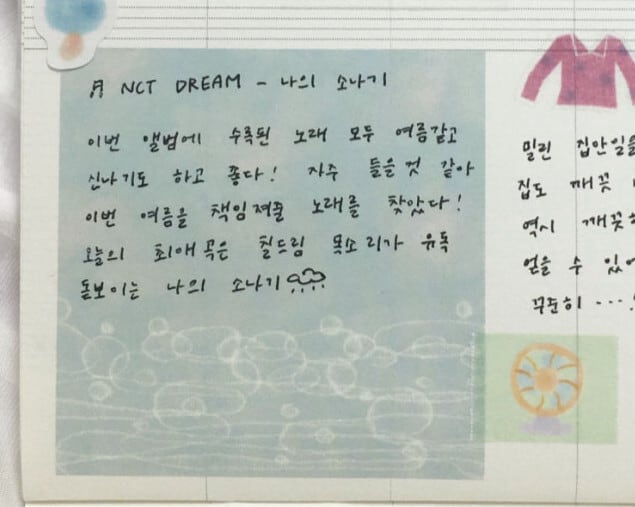 ♬ NCT DREAM – 나의 소나기
이번 앨범에 수록된 노래 모두 여름같고
신나기도 하고 좋다! 자주 들을것 같아
이번 여름을 책임져줄 노래를 찾았다!
오늘의 최애 곡은 칠드림 목소리가 유독
돋보이는 나의 소나기
밀린 집안일을
집도 깨끗
역시 깨끗하
얻을 수 있어
꾸준히 ···!